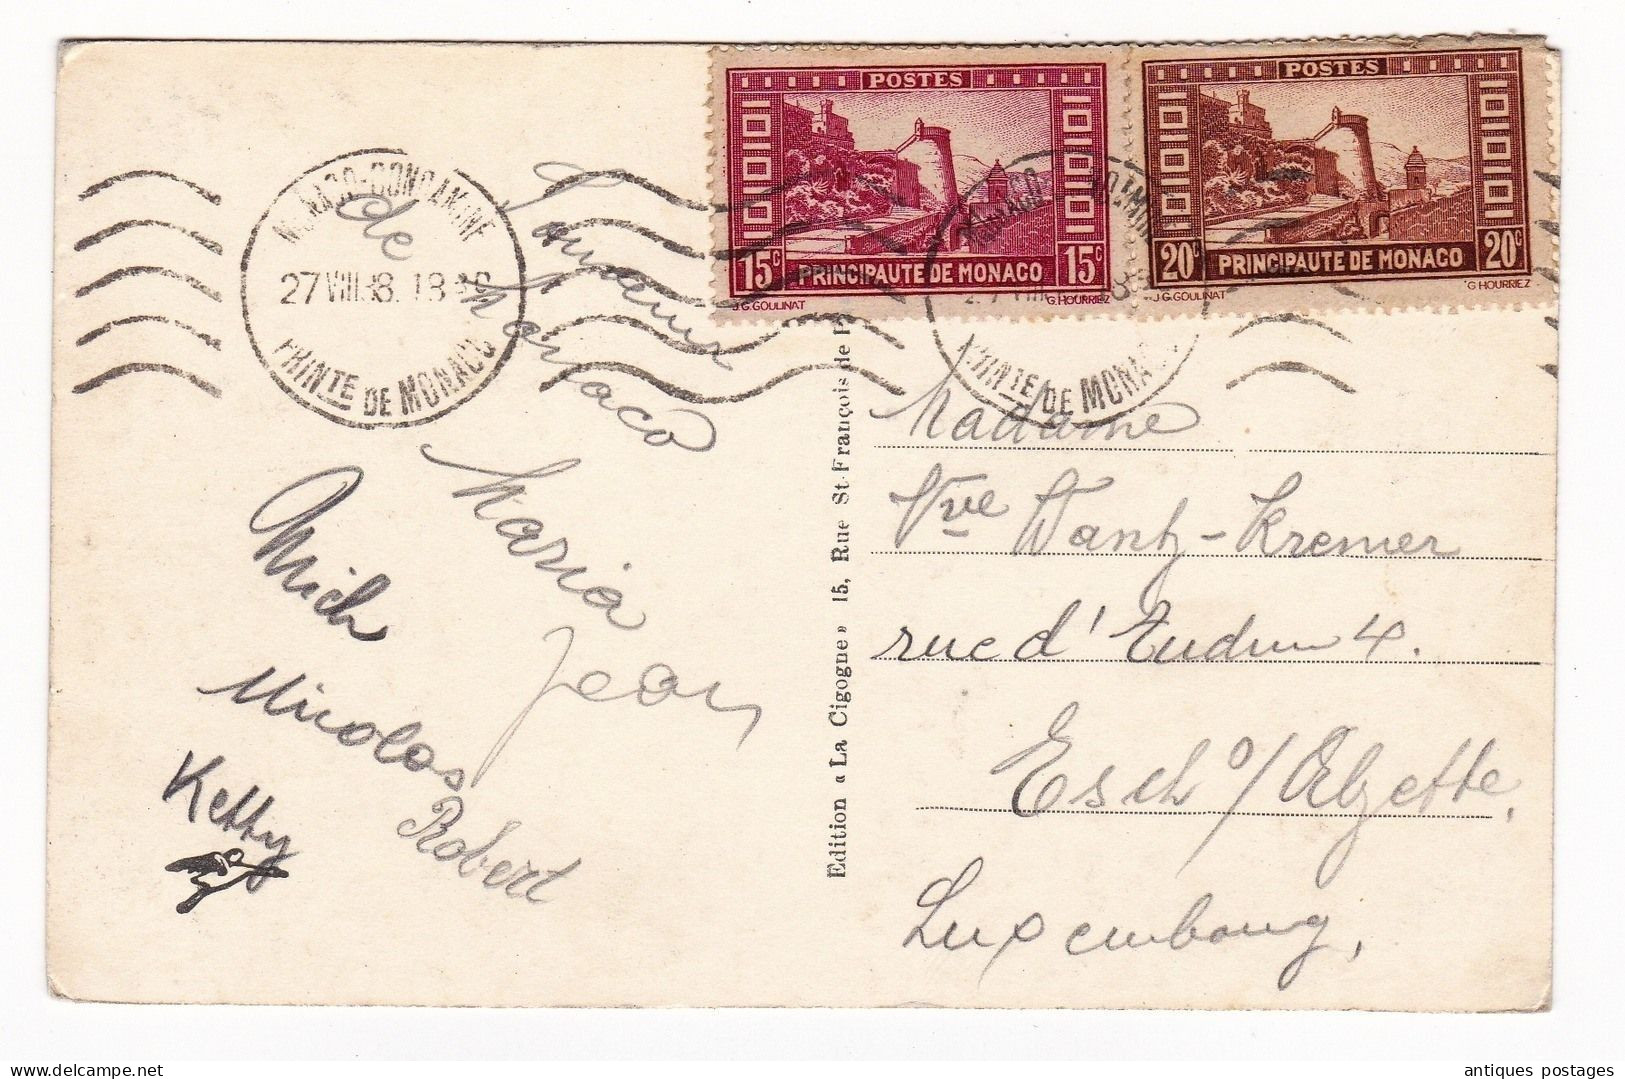 POSTES
15c 15c
PRINCIPAUTE DE MONACO
J.G.GOULINAT G.HOURRIEZ
POSTES
20c 20c
PRINCIPAUTE DE MONACO
J.G.GOULINAT G.HOURRIEZ
MONACO-CONDAMINE
27 VIII 38. 18
PRINTE DE MONACO
MONACO
PRINTE DE MONACO
Souvenir
de Monaco
Maria
Mich
Jean
Nicolas
Ketty
Robert
Edition « La Cigogne » 15, Rue St-François de P
Madame
Vve Wantz-Kremer
rue d'Audun 4.
Esch s/Alzette,
Luxembourg,
antiques postages
delcampe.net